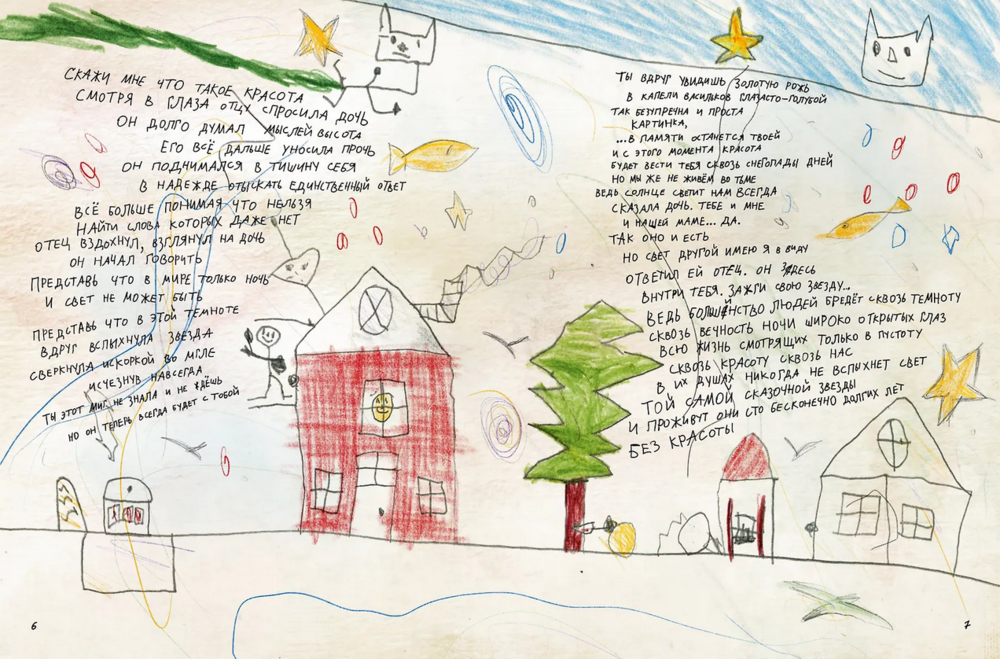 СКАЖИ МНЕ ЧТО ТАКОЕ КРАСОТА
СМОТРЯ В ГЛАЗА ОТЦУ СПРОСИЛА ДОЧЬ
ОН ДОЛГО ДУМАЛ МЫСЛЕЙ ВЫСОТА
ЕГО ВСЁ ДАЛЬШЕ УНОСИЛА ПРОЧЬ
ОН ПОДНИМАЛСЯ В ТИШИНУ СЕБЯ
В НАДЕЖДЕ ОТЫСКАТЬ ЕДИНСТВЕННЫЙ ОТВЕТ
ВСЁ БОЛЬШЕ ПОНИМАЯ ЧТО НЕЛЬЗЯ
НАЙТИ СЛОВА КОТОРЫХ ДАЖЕ НЕТ
ОТЕЦ ВЗДОХНУЛ, ВЗГЛЯНУЛ НА ДОЧЬ
ОН НАЧАЛ ГОВОРИТЬ
ПРЕДСТАВЬ ЧТО В МИРЕ ТОЛЬКО НОЧЬ
И СВЕТ НЕ МОЖЕТ БЫТЬ
ПРЕДСТАВЬ ЧТО В ЭТОЙ ТЕМНОТЕ
ВДРУГ ВСПЫХНУЛА ЗВЕЗДА
СВЕРКНУЛА ИСКОРКОЙ ВО МГЛЕ
ИСЧЕЗНУВ НАВСЕГДА..
ТЫ ЭТОТ МИГ НЕ ЗНАЛА И НЕ ЖДЁШЬ
НО ОН ТЕПЕРЬ ВСЕГДА БУДЕТ С ТОБОЙ
6
ТЫ ВДРУГ УВИДИШЬ ЗОЛОТУЮ РОЖЬ
В КАПЕЛИ ВАСИЛЬКОВ ГЛАЗАСТО-ГОЛУБОЙ
ТАК БЕЗУПРЕЧНА И ПРОСТА
КАРТИНКА,
...В ПАМЯТИ ОСТАНЕТСЯ ТВОЕЙ
И С ЭТОГО МОМЕНТА КРАСОТА
БУДЕТ ВЕСТИ ТЕБЯ СКВОЗЬ СНЕГОПАДЫ ДНЕЙ
НО МЫ ЖЕ НЕ ЖИВЁМ ВО ТЬМЕ
ВЕДЬ СОЛНЦЕ СВЕТИТ НАМ ВСЕГДА
СКАЗАЛА ДОЧЬ. ТЕБЕ И МНЕ
И НАШЕЙ МАМЕ... ДА.
ТАК ОНО И ЕСТЬ
НО СВЕТ ДРУГОЙ ИМЕЮ Я В ВИДУ
ОТВЕТИЛ ЕЙ ОТЕЦ. ОН ЗДЕСЬ
ВНУТРИ ТЕБЯ. ЗАЖГИ СВОЮ ЗВЕЗДУ...
ВЕДЬ БОЛЬШИНСТВО ЛЮДЕЙ БРЕДЁТ СКВОЗЬ ТЕМНОТУ
СКВОЗЬ ВЕЧНОСТЬ НОЧИ ШИРОКО ОТКРЫТЫХ ГЛАЗ
ВСЮ ЖИЗНЬ СМОТРЯЩИХ ТОЛЬКО В ПУСТОТУ
СКВОЗЬ КРАСОТУ СКВОЗЬ НАС
В ИХ ДУШАХ НИКОГДА НЕ ВСПЫХНЕТ СВЕТ
ТОЙ САМОЙ СКАЗОЧНОЙ ЗВЕЗДЫ
И ПРОЖИВУТ ОНИ СТО БЕСКОНЕЧНО ДОЛГИХ ЛЕТ
БЕЗ КРАСОТЫ
7